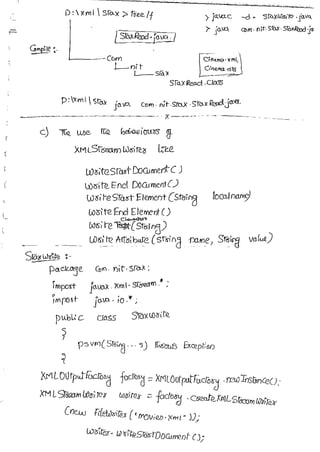 D:\xml\stax > tree/f
> javac -d . StaxWrite.java
> java com.nit.stax.StaxRead.ja
StaxRead.java
Compile :-
Com
nit
Stax
StaxRead.class
Cinema.xml
D:\xml\stax java com.nit.stax.StaxRead.java
x
c) The use the behaviours of
XMLStreamWriter like
WriteStart Document()
Write End Document()
WriteStart Element (String localname)
Write End Element()
Write (String)
Write Attribute (String name, String value)
StaxWrite :-
package Com.nit.stax;
import javax.xml.stream.*;
import java.io.*;
public class StaxWrite
{
psvm(String...s) throws Exception
{
XMLOutputFactory factory = XMLOutputFactory.newInstance();
XMLStreamWriter writer = factory.createXMLStreamWriter
(new FileWriter("movies.xml"));
writer.writeStartDocument();